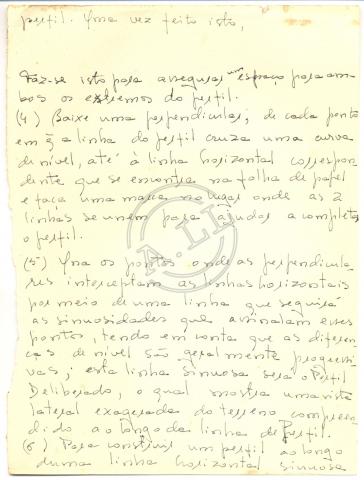 perfil. Uma vez feito isto,
Faz-se isto para assegurar um espaço para am-
bos os extremos do perfil.
(4) Baixe uma perpendicular, de cada ponto
em q a linha do perfil cruza uma curva
de nível, até à linha horizontal correspon-
dente que se encontra na folha de papel
e faça uma marca no lugar onde as 2
linhas se unem para ajudar a completar
o perfil.
(5) Una os pontos onde as perpendicula-
res interceptam as linhas horizontais
por meio de uma linha que seguirá
as sinuosidades que assinalam esses
pontos, tendo em conta que as diferen-
ças de nível são geralmente progressi-
vas; esta linha sinuosa será o Perfil
Deliberado, o qual mostra uma vista
lateral exagerada do terreno compreen-
dido ao longo da linha de Perfil.
(6) Para construir um perfil ao longo
duma linha horizontal sinuosa
A. LI